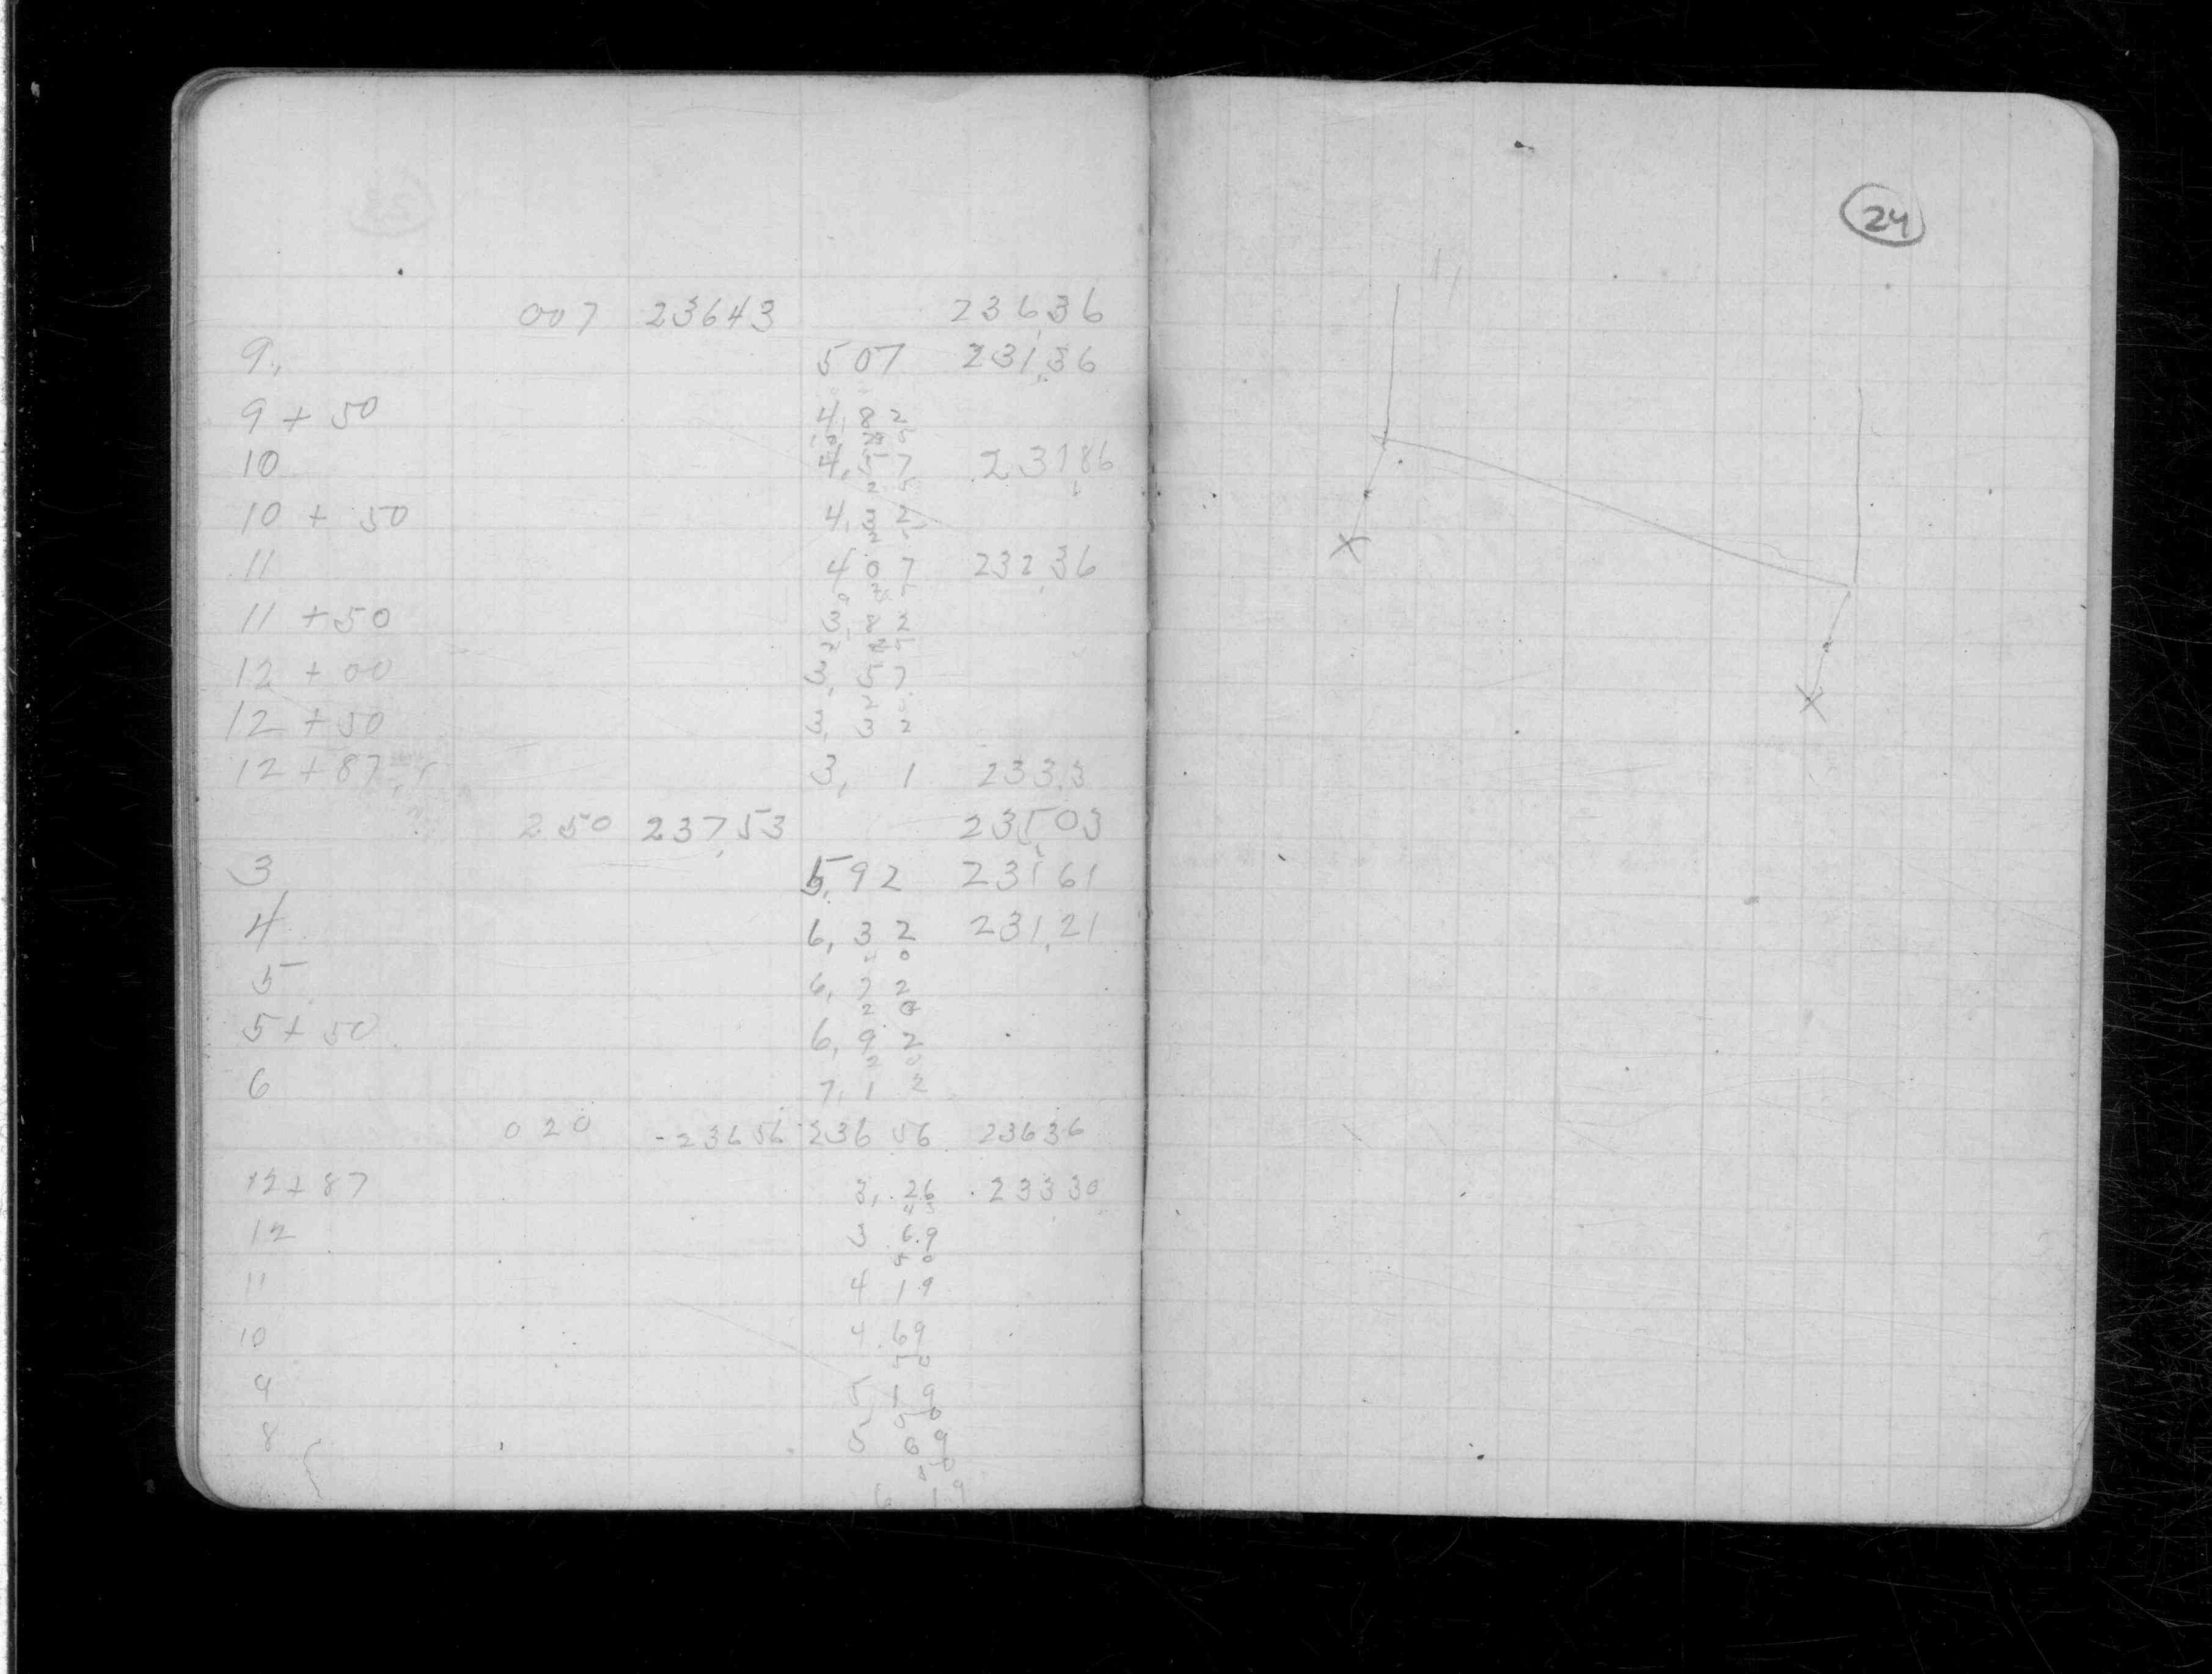 007 23643 236,36
9, 507 231,36
9 + 50 4,82
25
10 4,57 231,86
25
10 + 50 4,32
25
11 407 232,36
25
11 + 50 3,82
25
12 + 00 3,57
12 + 50 3,32
12 + 87 3, 1 233,3
250 237,53 235,03
3 5,92 231,61
4 6,32 231,21
40
5 6,72
20
5 + 50 6,92
20
6 7,12
020 -23656 236 56 23636
12 + 87 3,.26 .23330
43
12 3 69
50
11 4 19
10 4.69
50
9 5 19
50
8 5 69
50
6 19
24